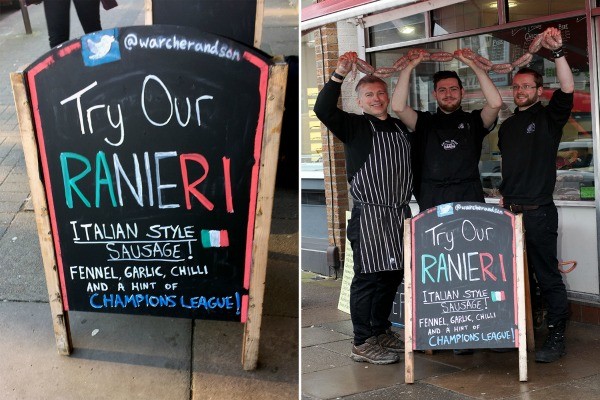 @warcherandson
Try Our
RANIERI
ITALIAN STYLE
SAUSAGE!
FENNEL, GARLIC, CHILLI
AND A HINT OF
CHAMPIONS LEAGUE!
@warcherandson
Try Our
RANIERI
ITALIAN STYLE
SAUSAGE!
FENNEL, GARLIC, CHILLI
AND A HINT OF
CHAMPIONS LEAGUE!